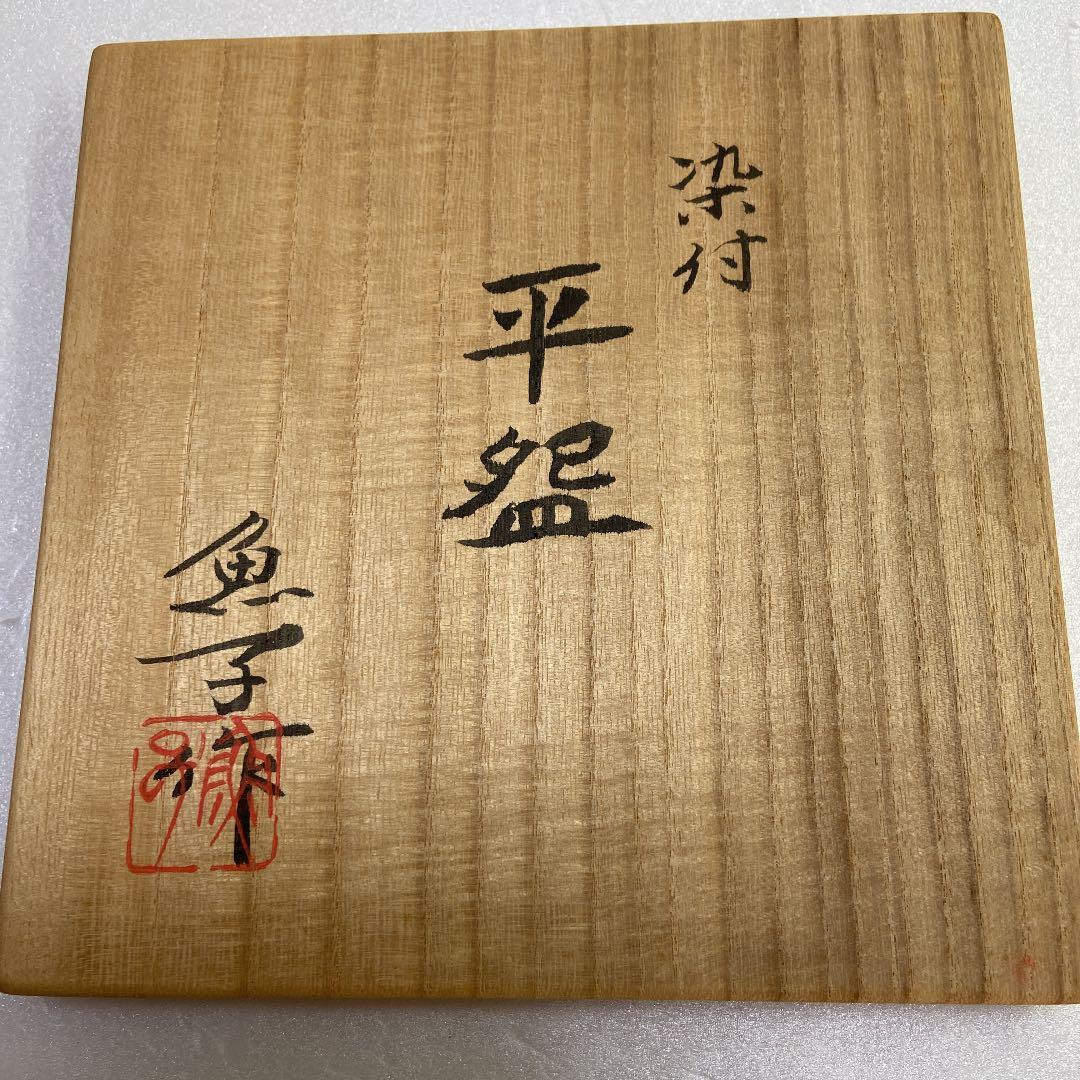 染付
平盌
魚子